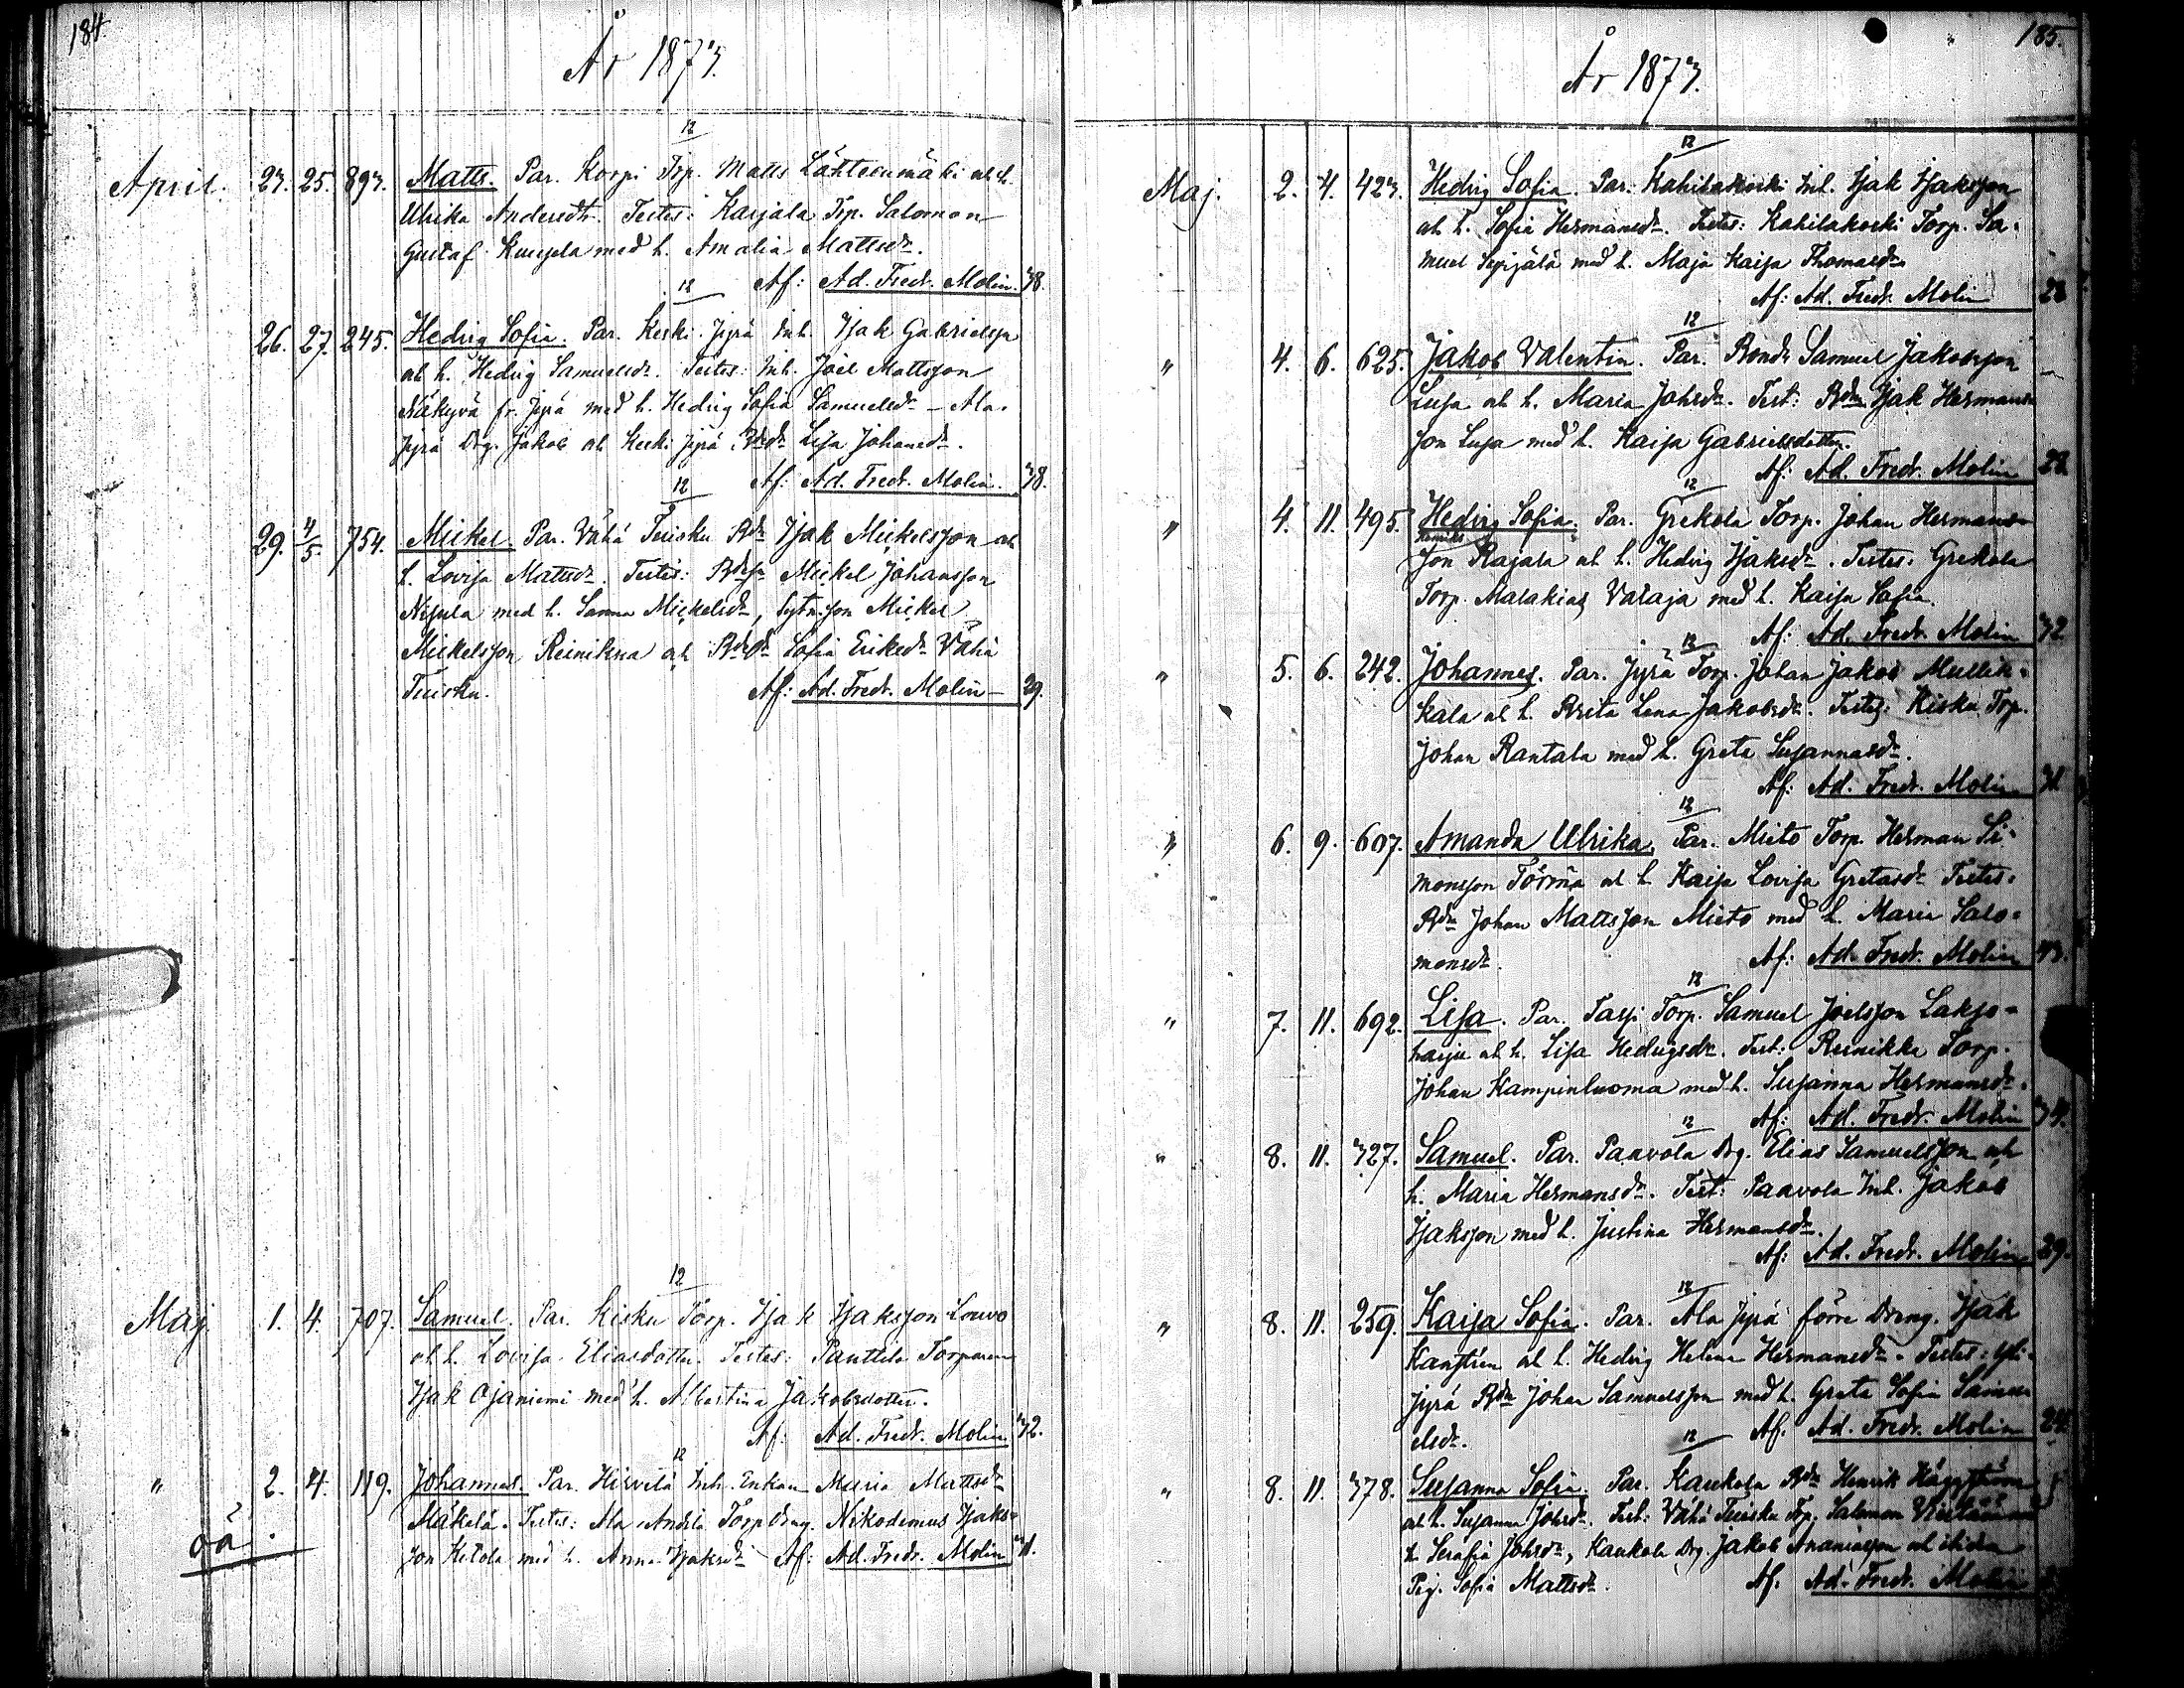 184.
År 1873.
12
April. 23. 25. 893. Matts. Par. Korpi Trp. Matts Lähteenmäki och h.
Ulrika Andersdr. Testes: Karjala Trp. Salomon
Gustaf med h. Amalia Mattsdr.
12 Af: Ad. Fredr. Molin. 38.
26. 27. 245. Hedvig Sofia. Par. Keski Jyrä Inh. Isak Gabrielsson
och h. Hedvig Samuelsdr. Testes: Inh. Joel Mattsson
Näkyvä fr. Jyrä med h. Hedvig Sofia Samuelsdr – Ala-
Jyrä Drg. Jakob och Keski Jyrä Bdedr Lisa Johansdr.
12 Af: Ad. Fredr. Molin. 38.
29. 4/5. 754. Mickel. Par. Wähä Tuisku Bdn Isak Mickelsson och
h. Lovisa Mattsdr. Testes: Mickel Johansson
Nisula med h. Sanna Mickelsdr, Sytn.son Mickel
Mickelsson Reinikka och Bdedr Sofia Eriksdr Vähä
Tuisku. Af: Ad. Fredr. Molin – 29.
12
Maj. 1. 4. 707. Samuel. Par. Kisku Torp. Isak Isaksson Louvo
och h. Lovisa Eliasdotter. Testes: Panttila Torparen
Isak Ojaniemi med h. Albertina Jakobsdotter.
Af: Ad. Fredr. Molin 32.
12
" 2. 4. 119. Johannes. Par. Hirvelä Inh. Enkan Maria Mattsdr
Mäkelä. Testes: Ala Andila Torpdrng. Nikodemus Isaks-
son Ketola med h. Anna Isaksdr Af: Ad. Fredr. Molin 31.
oä.
185.
År 1873.
12
Maj. 2. 4. 423. Hedvig Sofia. Par. Kahilakoski Inh. Isak Isaksson
och h. Sofia Hermansdr. Testes: Kahilakoski Torp. Sa-
muel med h. Maja Kaisa Thomasdr
Af: Ad. Fredr. Molin 28
12
" 4. 6. 625. Jakob Valentin. Par. Bonde Samuel Jakobsson
Luja och h. Maria Johsdr. Test: Bdn Isak Hermans-
son Luja med h. Kaisa Gabrielsdotter.
12 Af: Ad. Fredr. Molin 28
" 4. 11. 495. Hedvig Sofia. Par. Grekola Torp. Johan Hermans-
son Rajala och h. Hedvig Isaksdr. Testes: Grekola
Torp. Malakias Varaja med h. Kaisa Sofia.
12 Af: Ad. Fredr. Molin 32
" 5. 6. 242. Johannes. Par. Jyrä Torp. Johan Jakob Mullik-
kala och h. Brita Lena Jakobsdr. Testes: Kisku Trp.
Johan Rantala med h. Greta Susannasdr.
Af: Ad. Fredr. Molin 31
12
" 6. 9. 607. Amanda Ulrika. Par. Mieto Torp. Herman Si-
monsson Törmä och h. Kaisa Lovisa Gretasdr Testes:
Bdn Johan Mattsson Mieto med h. Maria Salo-
monsdr. Af: Ad. Fredr. Molin 43.
12
" 7. 11. 692. Lisa. Par. Passi Torp. Samuel Joelsson Lakso-
harju och h. Lisa Hedvigsdr. Test: Reinikka Torp.
Johan Kampinluoma med h. Susanna Hermansdr.
12 Af: Ad. Fredr. Molin 34.
" 8. 11. 327. Samuel. Par. Paavola Drg. Elias Samuelsson och
h. Maria Hermansdr. Test: Paavola Inh. Jakob
Isaksson med h. Justina Hermansdr.
Af: Ad. Fredr. Molin 29.
12
" 8. 11. 259. Kaisa Sofia. Par. Ala Jyrä förre Dreng. Isak
Kanstrén och h. Hedvig Helena Hermansdr. Testes: Yli-
Jyrä Bdn Johan Samuelsson med h. Greta Sofia Samu-
elsdr. 12 Af: Ad. Fredr. Molin 24.
" 8. 11. 378. Susanna Sofia. Par. Kaukola Bdn Henrik Häggström
och h. Susanna Johsdr. Test: Vähä Tuisku Trp. Salomon
h. Serafia Johsdr, Kaukola Drg. Jakob Ananiasson och
Pig. Sofia Mattsdr. Af: Ad. Fredr. Molin